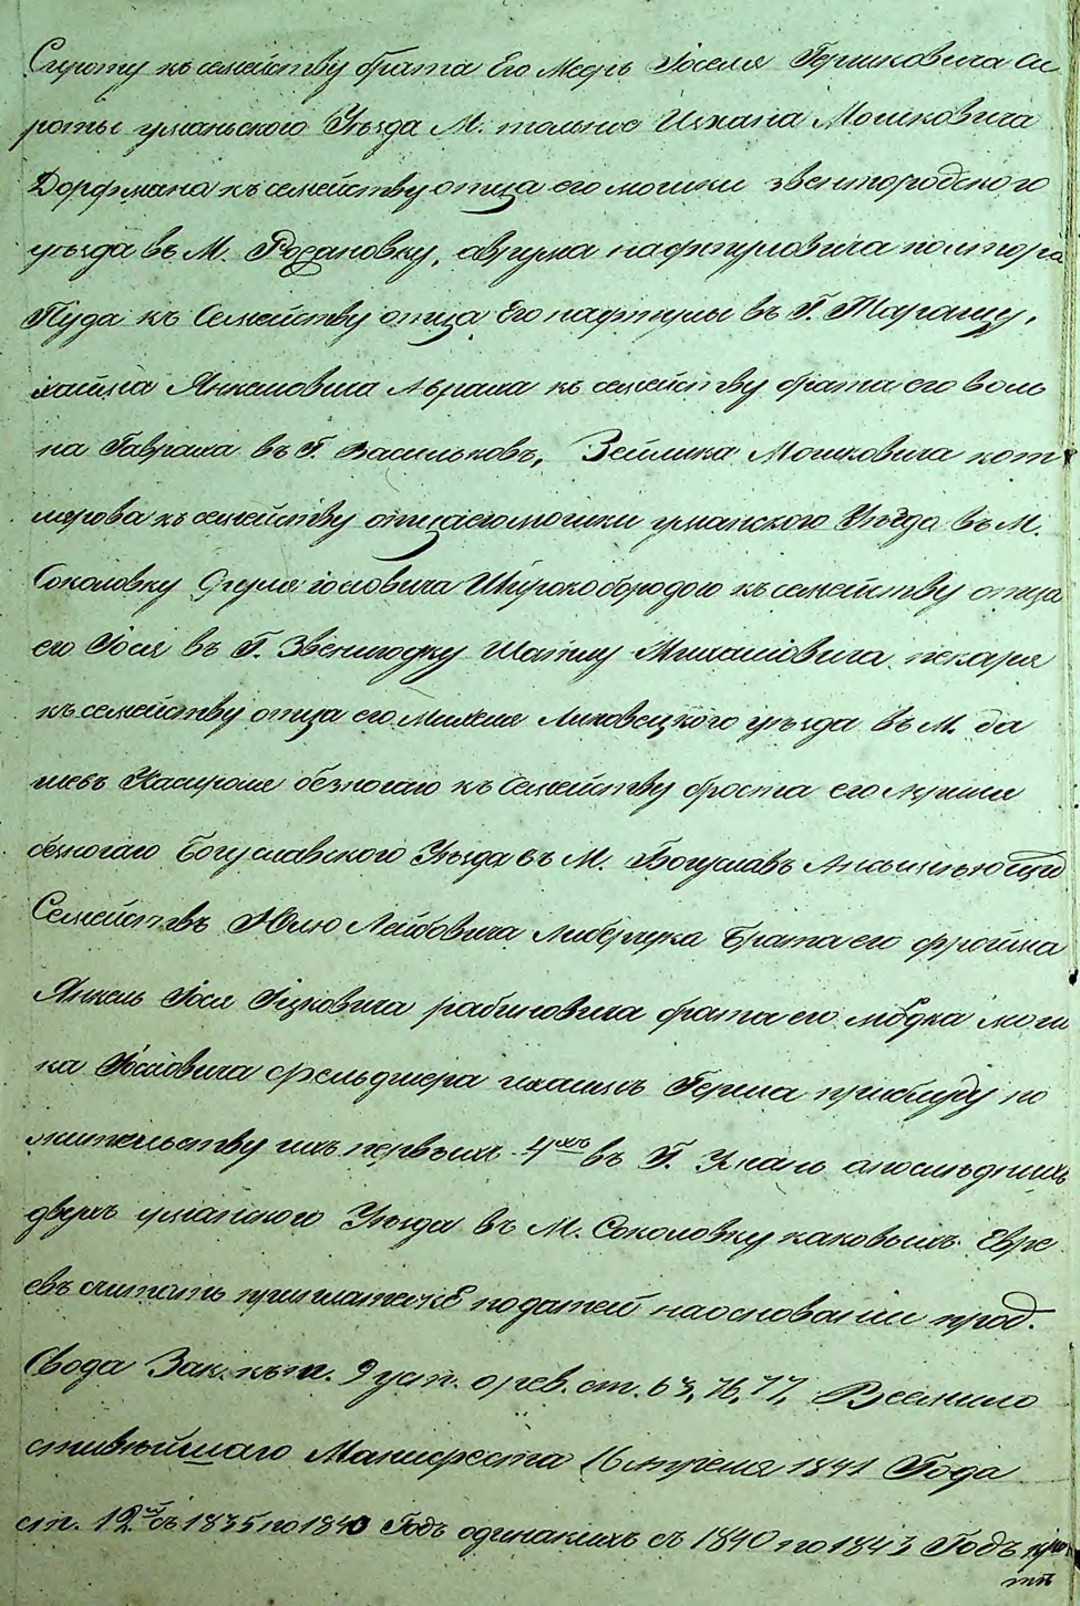 Сироту къ семейству брата Его Мееръ Іоселя Гершковича Си
роты уманьского Уѣзда М. тальное Цихана Мошковича
Дорфмана къ семейству отца его мошки звенигородского
уѣзда въ М. Рѳзановку, аврума нафтуловича полтора
Пуда къ Семейству отца Его нафтулы въ Г. Таращу,
хаима Янкелювича къ семейству брата его воль
ка Гаврака въ Г. Васильковъ, Зейлика Мошковича кот
лярова къ семейству отца его мошки уманского Уѣзда въ М.
Соколовку Сруля іосіовича Широкобродого къ семейству отца
его Іося въ Г. Звенигодку Шапсу Михалювича пекаря
къ семейству отца его михеля Липовецкого уѣзда въ М. да
шевъ безногаго къ Семейству брата его
безногаго Богуславского Уѣзда въ М. Богуславъ
Семействъ Юлю Лейбовича Либерчука Брата его фройка
Янкель Іося Іцковича рабиновича брата его мош
ка Іосіовича фельдшера Герша прибуду по
жительству ихъ первыхъ 4хъ въ Г. Умань апослѣднихъ
двухъ уманского Уѣзда въ М. Соколовку каковыхъ Евре
евъ считать податей наосновании прод.
Свода Зак. къ т. 9 уст. о рев. ст. 63, 76, 77, Всемило
стивѣйшаго Манифеста 16 Апрѣля 1841 Года
ст. 12й съ 1835 по 1840 Годъ одинакихъ съ 1840 по 1843 Годъ